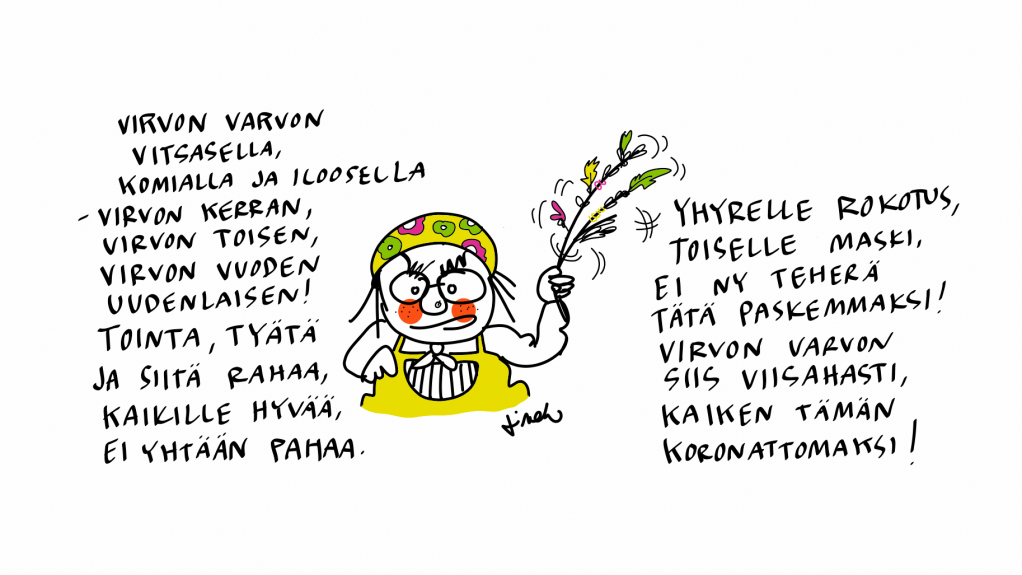 VIRVON VARVON
VITSASELLA,
KOMIALLA JA ILOOSELLA
- VIRVON KERRAN,
VIRVON TOISEN,
VIRVON VUODEN
UUDENLAISEN!
TOINTA, TYÄTÄ
JA SIITÄ RAHAA,
KAIKILLE HYVÄÄ,
EI YHTÄÄN PAHAA.
YHYRELLE ROKOTUS,
TOISELLE MASKI,
EI NY TEHERÄ
TÄTÄ PASKEMMAKSI!
VIRVON VARVON
SIIS VIISAHASTI,
KAIKEN TÄMÄN
KORONATTOMAKSI!